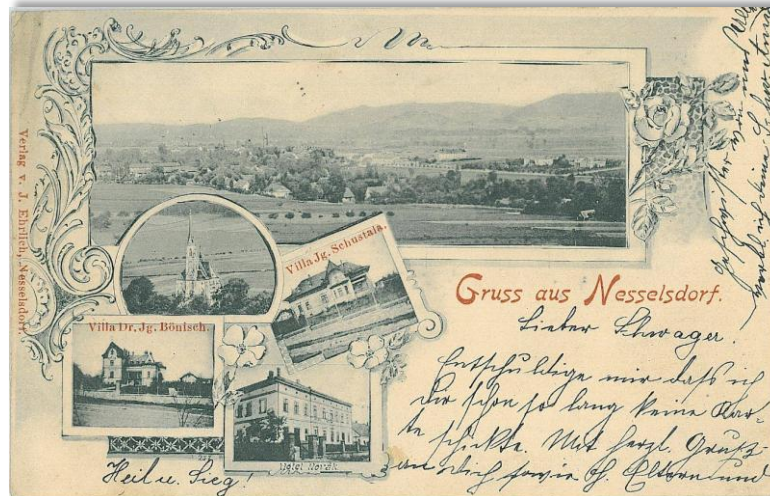 Verlag v. J. Ehrlich, Nesselsdorf.
Villa Jg. Schustala.
Villa Dr. Jg. Bönisch.
Hotel Novák
Gruss aus Nesselsdorf.
Lieber Schwager.
Entschuldige mir daß ich
dir schon so lang keine Kar-
te schickte. Mit herzl. Gruß
an dich sowie d. Eltern und
Geschwister von mir
Heil u. Sieg!